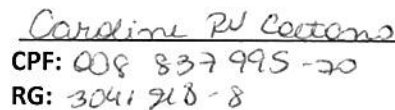 Caroline RV Caetano
CPF: 008 837 995-20
RG: 3041 918-8